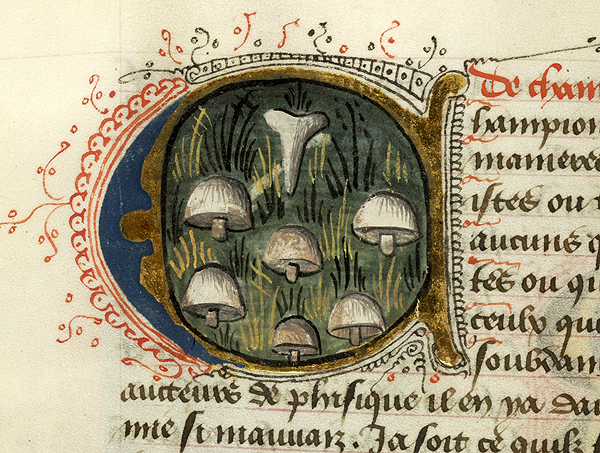 De cham
C hampion
manieres
istes ou
aucuns q
tes ou qu
ceulx qui
soubdam
aucteurs de phisique il en ya da
mie si mauuaiz. Ja soit ce quilz